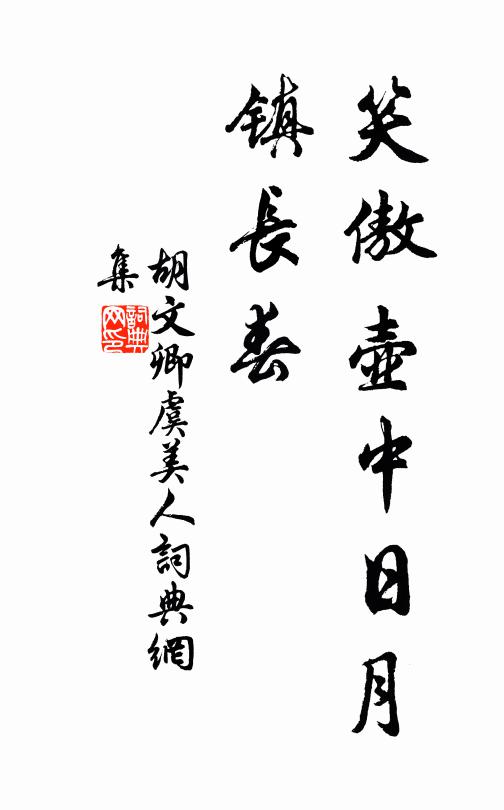 笑傲壺中日月
鎮長春
胡文卿虞美人詞典網
集
詞典網印